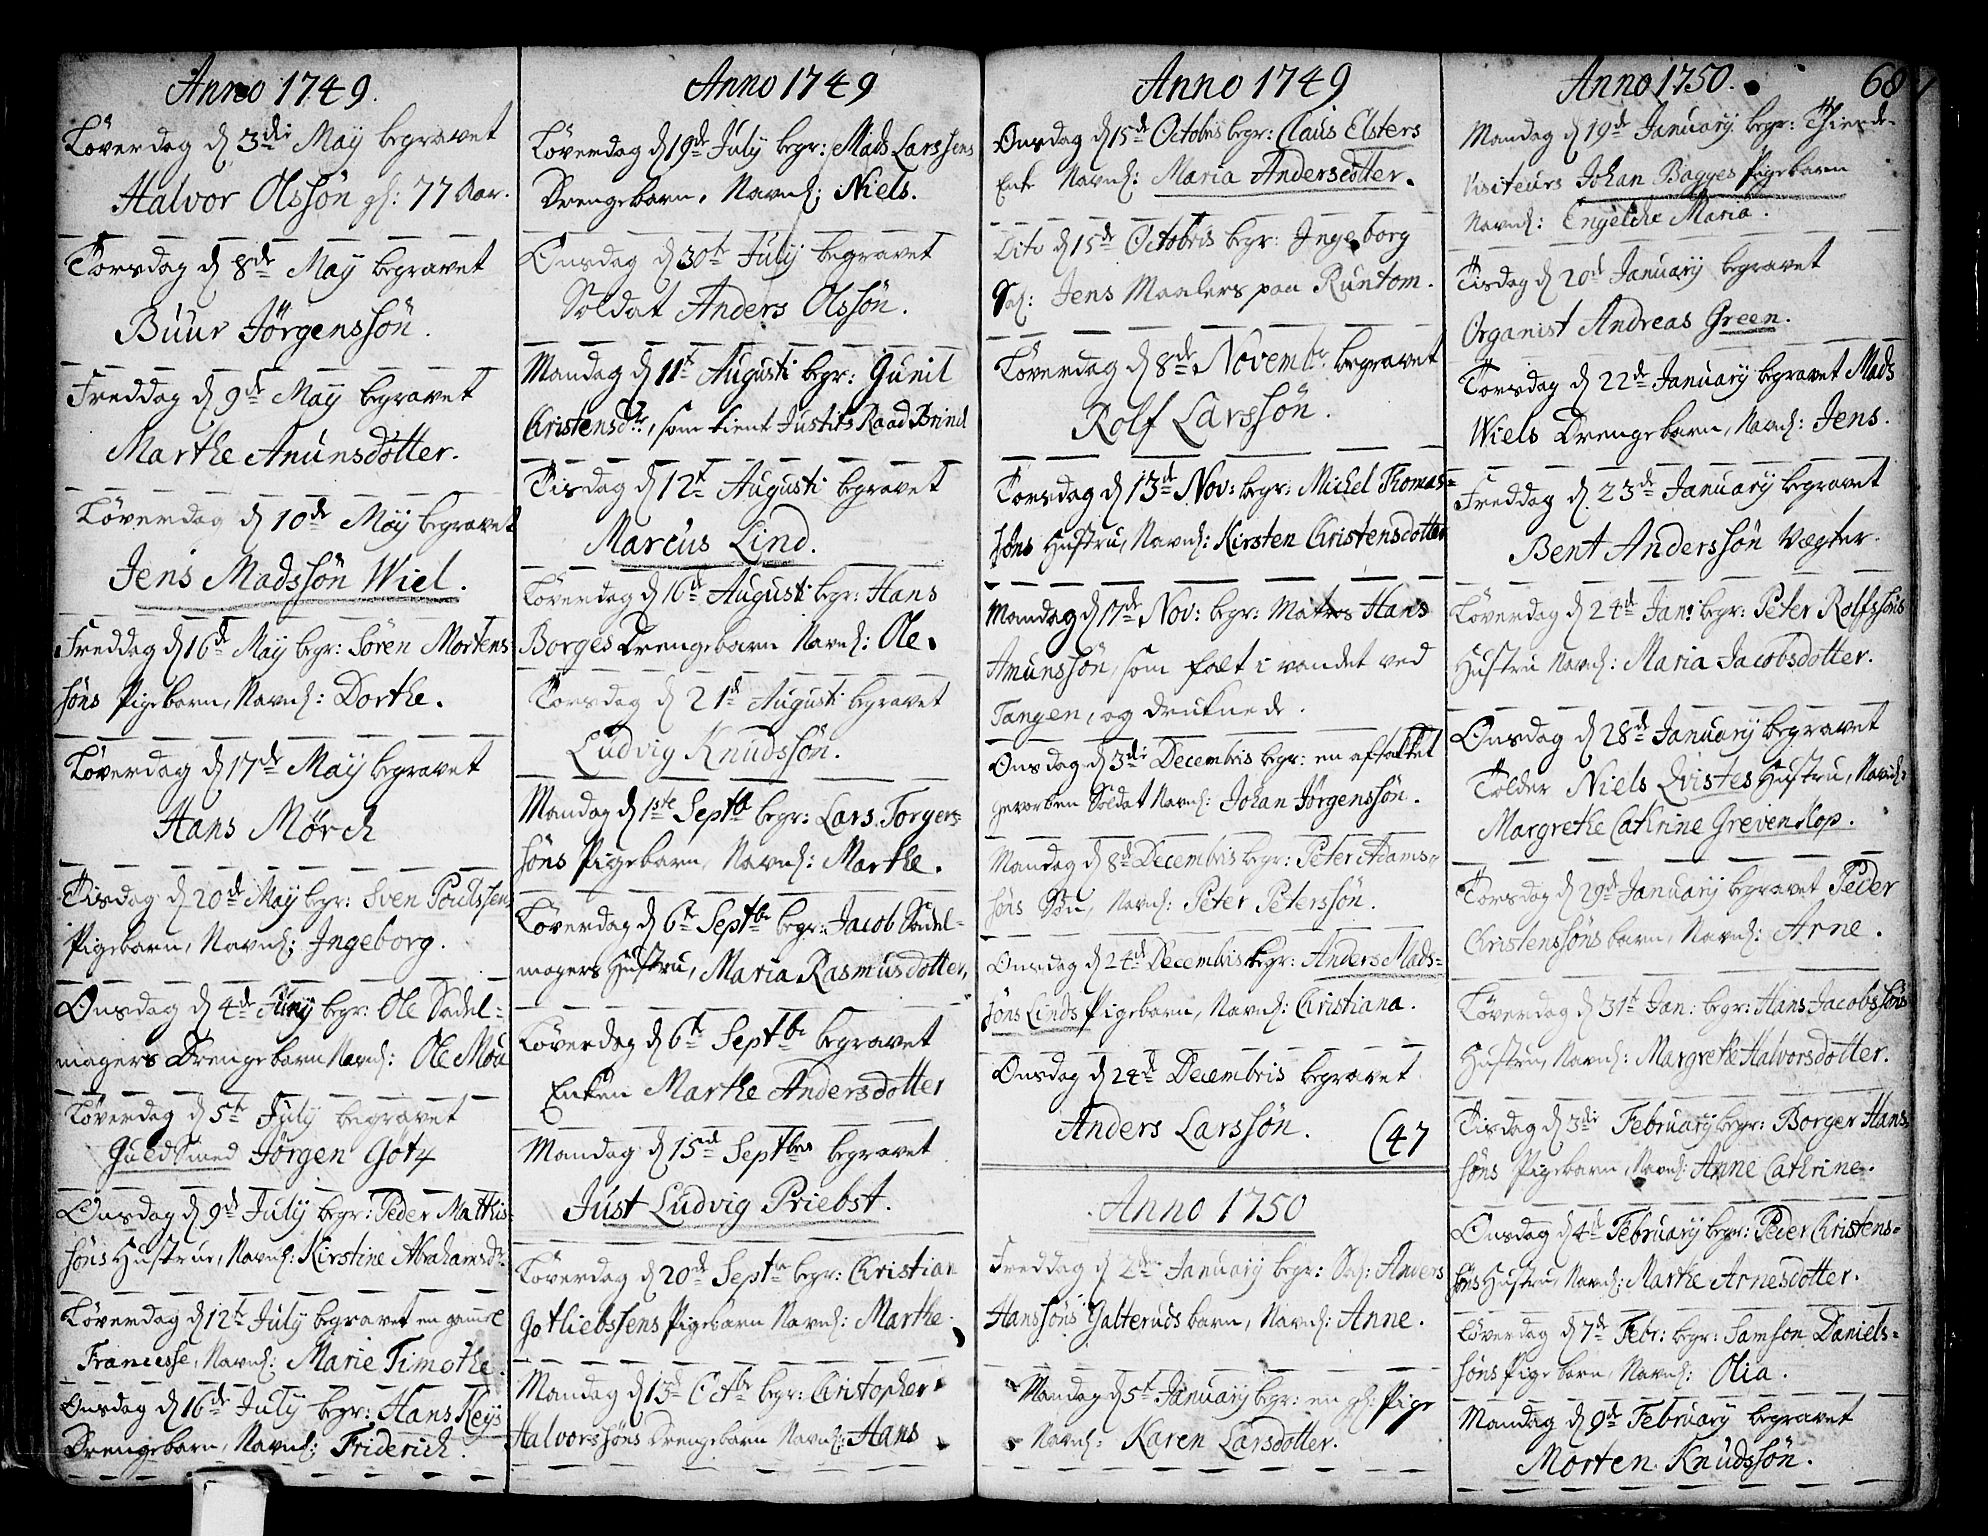 Anno 1749.
Løverdag d 3die May begravet
Halvor Olssøn gl: 77 Aar.
Torsdag d 8de May begravet
Buur Jørgenssøn.
Freddag d 9de May begravet
Marthe Anunsdotter.
Løverdag d 10de May begravet
Jens Madssøn Wiel.
Freddag d 16de May begr: Søren Mortens
søns Pigebarn, Navnl: Dorthe.
Løverdag d 17de May begravet
Hans Mørch
Tisdag d 20de May begr: Sven Poulssens
Pigebarn, Navnl: Ingeborg.
Onsdag d 4de Juny begr: Ole Sadel-
magers Drengebarn Navnl: Ole Mou
Løverdag d 5te July begravet
Guldsmed Jørgen Götz
Onsdag d 9de July begr: Peder Mathis-
søns Hustrue, Navnl: Kirstine Abrahamsdr
Løverdag d 12te July begravet en gamel
Francesse, Navnl: Marie Timothe.
Onsdag d 16de July begr: Hans Keys
Drengebarn, Navnl: Friderich.
Anno 1749
Løverdag d 19de July begr: Mads Larssens
Drengebarn, Navnl: Niels.
Onsdag d 30te July begravet
Soldat Anders Olssøn.
Mandag d 11te Augusti begr: Gunil
Christensdtr, som tient Justits Raad Brinch
Tisdag d 12te Augusti begravet
Marcus Lind.
Løverdag d 16de Augusti begr: Hans
Borges Drengebarn Navnl: Ole.
Torsdag d 21de Augusti begravet
Ludvig Knudssøn.
Mandag d 1ste Septbr begr: Lars Torgers
søns Pigebarn, Navnl: Marthe.
Løverdag d 6te Septbr begr: Jacob Sadel-
magers Hustru, Maria Rasmusdotter,
Løverdag d 6te Septbr begravet
Enken Marthe Andersdotter
Mandag d 15de Septbris begravet
Just Ludvig Priebst.
Løverdag d 20de Septbr begr: Christian
Gotliebssens Pigebarn Navnl: Marthe.
Mandag d 13de Octbr begr: Christopher
Halvorssøns Drengebarn Navnl: Hans
Anno 1749
Onsdag d 15de Octobris begr: Claus Elsters
Enke Navnl: Maria Andersdotter.
Dito d 15de Octobris begr: Ingeborg
Sal: Jens Maalers paa Runtom.
Løverdag d 8de Novembr begravet
Rolf Larssøn.
Torsdag d 13de Nov: begr: Michel Thomas-
søns Hustru, Navnl: Kirsten Christensdotter
Mandag d 17de Nov: begr: Matros Hans
Amunssøn, som falt i vandet ved
Tangen, og druknede.
Onsdag d 3die Decembris begr: en aftakket
gevorben Soldat Navnl: Johan Jørgenssøn.
Mandag d 8de Decembris begr: Peter Adams-
søns Søn, Navnl: Peter Peterssøn.
Onsdag d 24de Decembris begr: Anders Mads-
søns Linds Pigebarn, Navnl: Christiana.
Onsdag d 24de Decembris begravet
Anders Larssøn. (47
Anno 1750
Freddag d 2den January begr: Sal: Anders
Hanssøns Galteruds barn, Navnl: Anne.
Mandag d 5te January begr: en gl: Pige
Navnl: Karen Larsdotter.
Anno 1750. 68
Mandag d 19de January begr: Thiende-
Visiteurs Johan Bagges Pigebarn
Navnl: Engelche Maria.
Tisdag d 20de January begravet
Organist Andreas Green.
Torsdag d 22de January begravet Mads
Wiels Drengebarn, Navnl: Jens.
Freddag d 23de January begravet
Bent Anderssøn Vegter.
Løverdag d 24de Jan: begr: Peter Rolfssøns
Hustru Navnl: Maria Jacobsdotter.
Onsdag d 28de January begravet
Tolder Niels Qvistes Hustru, Navnl:
Margrethe Cathrine Grevenkop.
Torsdag d 29de January begravet Peder
Christenssøns barn, Navnl: Arne.
Løverdag d 31te Jan: begr: Hans Jacobssøns
Hustru, Navnl: Margrethe Halvorsdotter.
Tisdag d 3die February begr: Borger Hans
søns Pigebarn, Navnl: Anne Cathrine.
Onsdag d 4de February begr: Peder Christens-
søns Hustru, Navnl: Marthe Arnesdotter.
Løverdag d 7de Febr: begr: Samson Daniels-
søns Pigebarn, Navnl: Olia.
Mandag d 9de February begravet
Morten Knudssøn.